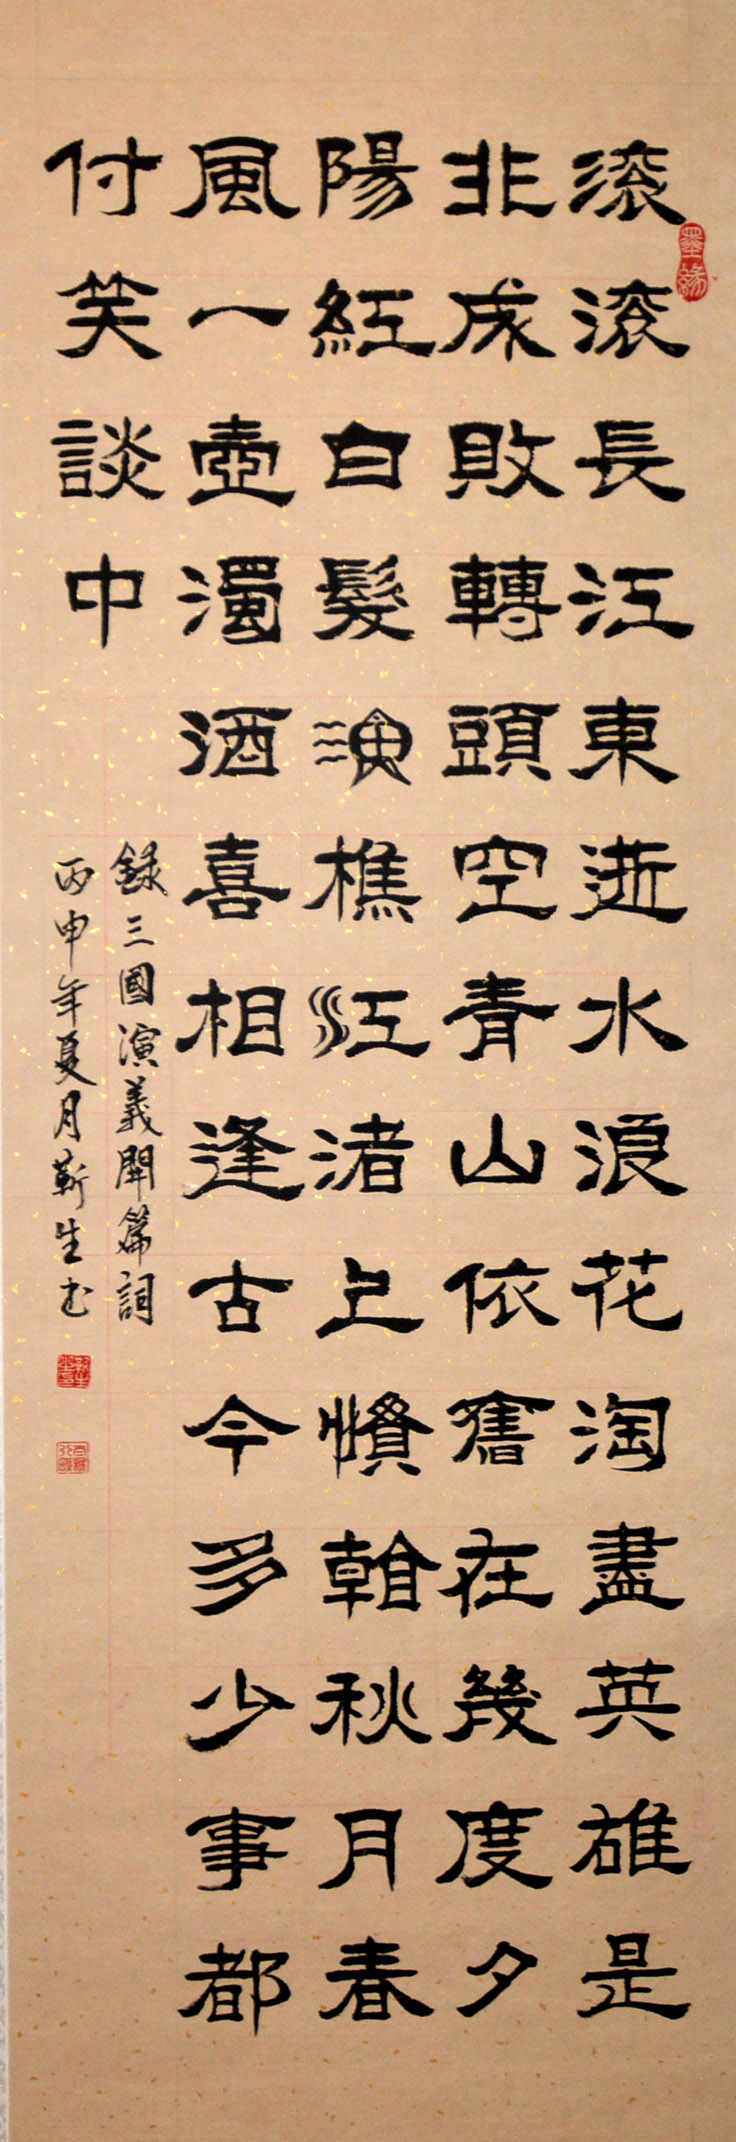 墨緣
滚滚長江東逝水浪花淘盡英雄是
非成敗轉頭空青山依舊在幾度夕
陽紅白髮漁樵江渚上慣看秋月春
風一壺濁酒喜相逢古今多少事都
付笑談中
錄三國演義開篇詞
丙申年夏月靳生书